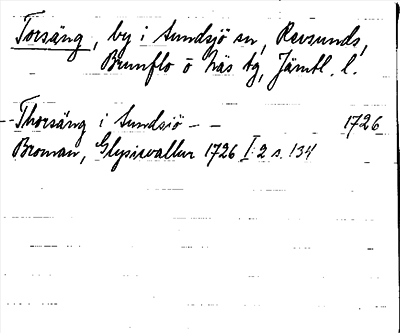 Torsäng, by i Sundsjö sn, Revsunds,
Brunflo o Näs tg, Jämtl. l.
Thorsäng i Sundsjö - - 1726
Broman, Glysisvallur 1726 I:2 s. 134